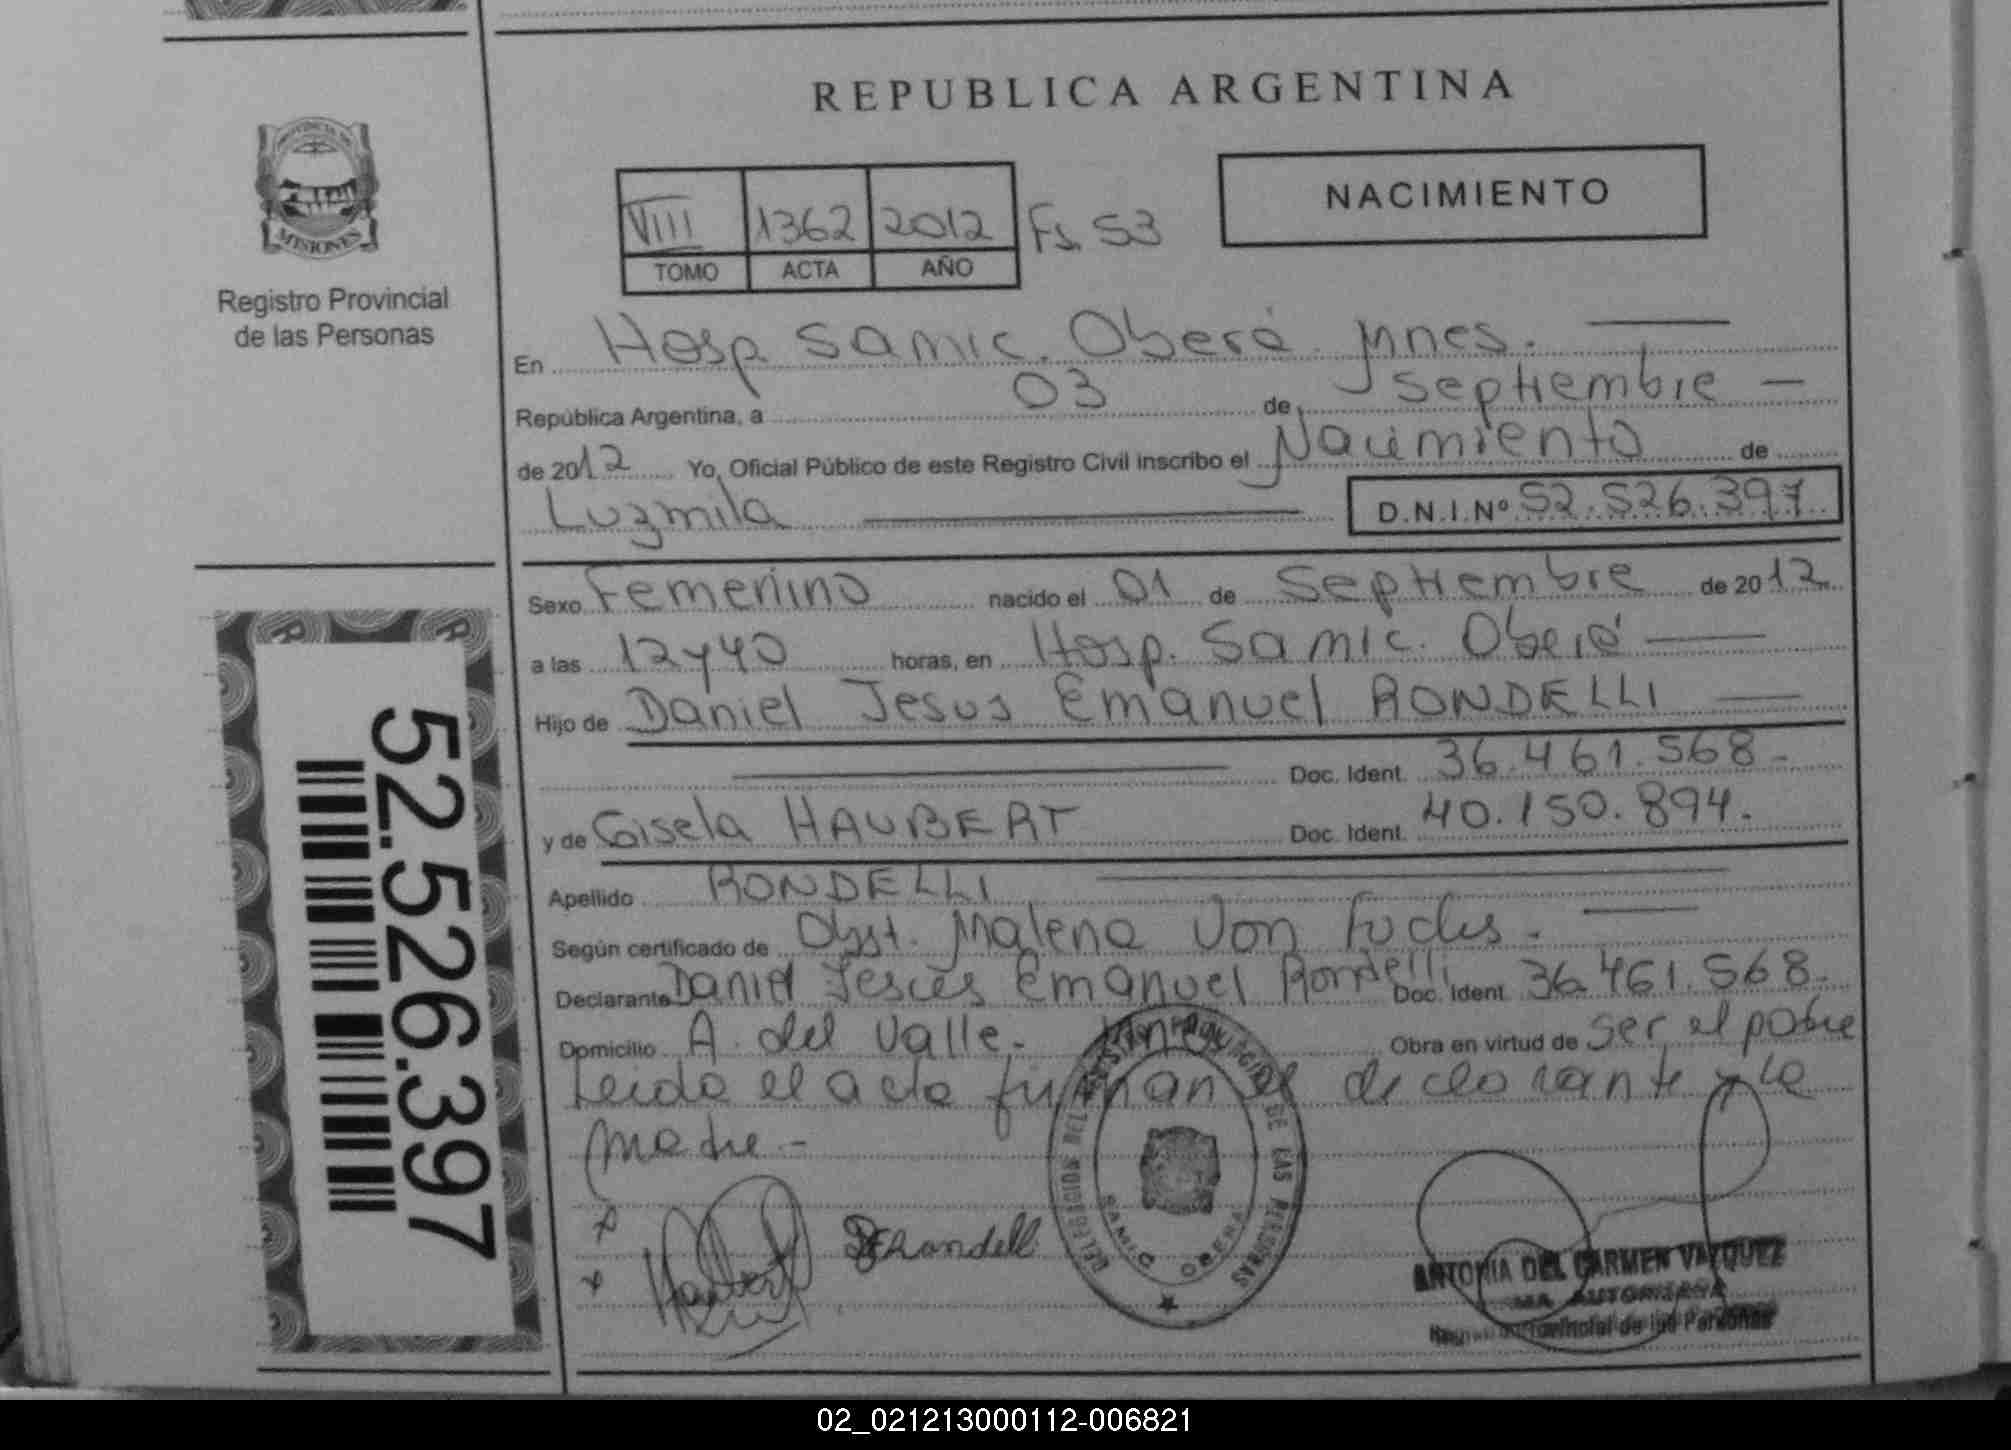 REPUBLICA ARGENTINA
PROVINCIA DE
MISIONES
Registro Provincial
de las Personas
NACIMIENTO
VIII 1362 2012 Fs. 53
TOMO ACTA AÑO
En Hosp. Samic. Oberá. Mnes.
República Argentina, a 03 de Septiembre
de 2012 Yo, Oficial Público de este Registro Civil inscribo el Nacimiento de
Luzmila D.N.I.Nº 52.526.397
Sexo Femenino nacido el 01 de Septiembre de 2012
a las 12 y 40 horas, en Hosp. Samic. Oberá
Hijo de Daniel Jesus Emanuel RONDELLI
Doc. Ident. 36.461.568-
y de Gisela HAUBERT Doc. Ident. 40.150.894.
Apellido RONDELLI
Según certificado de Obst. Malena Von Fuchs.
Declarante Daniel Jesús Emanuel Rondelli Doc. Ident. 36.461.568-
Domicilio A. del Valle. Mnes Obra en virtud de ser el padre
Leida el acta firman el declarante y la
madre.-
52.526.397
DELEGACION DEL REGISTRO PROVINCIAL DE LAS PERSONAS
SAMIC OBERA
Haubert
Rondelli
ANTONIA DEL CARMEN VAZQUEZ
Provincial de las Personas
02_021213000112-006821